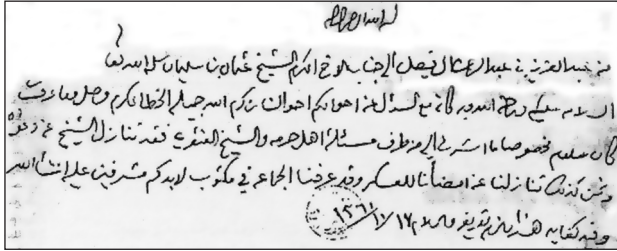 بسم الله الرحمن الرحيم
من عبد العزيز بن عبد الرحمن الفيصل إلى جناب الأخ المكرم الشيخ عثمان بن سليمان سلمه الله تعالى
السلام عليكم ورحمة الله وبركاته مع السؤال عن أحوالكم أحوالنا من كرم الله جميلة الخط المكرم وصل وما عرفت
كان معلوم خصوصا ما اشرت إليه من طرف مسئلة أهل حرمه والشيخ العنقري فقد تنازل الشيخ عن دعوه
ونحن كذلك تنازلنا عن امضائنا للعسكر وقد عرفنا الجماعة في مكتوب لابدكم مشرفين عليه انشاء الله
وفيه كفاية هذا ما لزم تعريفه والسلام ١٣٦٠/١٠/١٦